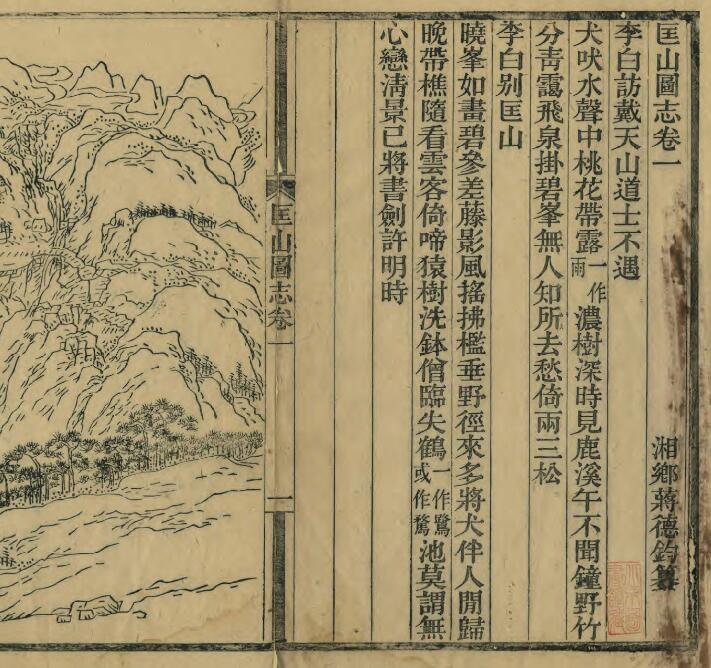 匡山圖志卷一
湘鄉蔣德鈞纂
李白訪戴天山道士不遇
犬吠水聲中桃花帶露一作雨濃樹深時見鹿溪午不聞鐘野竹
分青靄飛泉掛碧峯無人知所去愁倚兩三松
李白别匡山
曉峯如畫碧參差藤影風搖拂檻垂野徑來多將犬伴人閒歸
晚帶樵隨看雲客倚啼猿樹洗鉢僧臨失鶴一作鷺或作鶩池莫謂無
心戀淸景已將書劍許明時
匡山圖志卷一
一